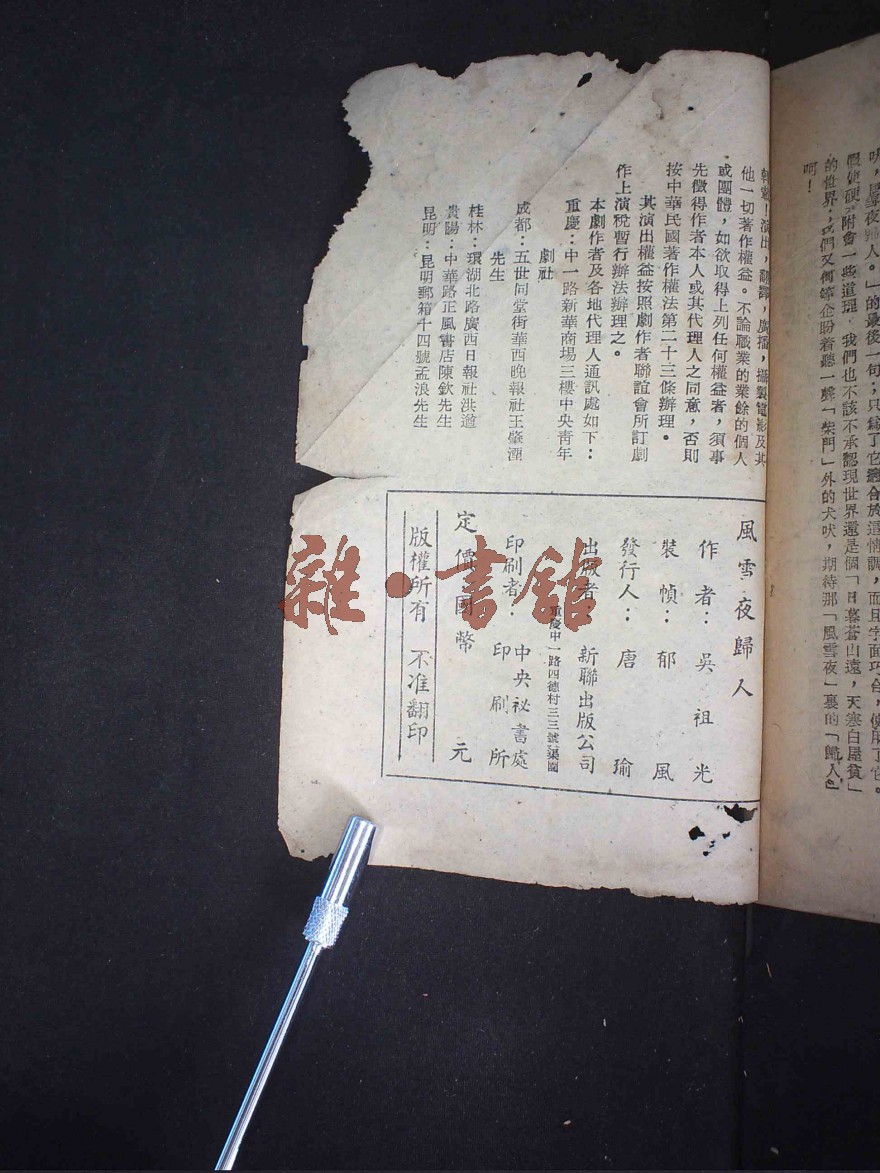 吠，風雪夜歸人。」的最後一句；只爲了它適合於這情調，而且字面巧合，便用了它。
假使硬要附會一些道理，我們也不該不承認現世界還是個「日暮蒼山遠，天寒白屋貧」
的世界；我們又何等企盼着聽一聲「柴門」外的犬吠，期待那「風雪夜」裏的「歸人」
啊！
轉載！演出，翻譯，廣播，攝製電影及其
他一切著作權益。不論職業的業餘的個人
或團體，如欲取得上列任何權益者，須事
先徵得作者本人或其代理人之同意，否則
按中華民國著作權法第二十三條辦理。
其演出權益按照劇作者聯誼會所訂劇
作上演稅暫行辦法辦理之。
本劇作者及各地代理人通訊處如下：
重慶：中一路新華商場三樓中央青年
劇社
成都：五世同堂街華西晚報社王肇湮
先生
桂林：環湖北路廣西日報社洪遒
貴陽：中華路正風書店陳欽先生
昆明：昆明郵箱十四號孟浪先生
風雪夜歸人
作者：吳祖光
裝幀：郁風
發行人：唐瑜
出版者：新聯出版公司
重慶中一路四德村三三號
印刷者：中央祕書處
印刷所
定價國幣 元
版權所有 不准翻印
雜·書館